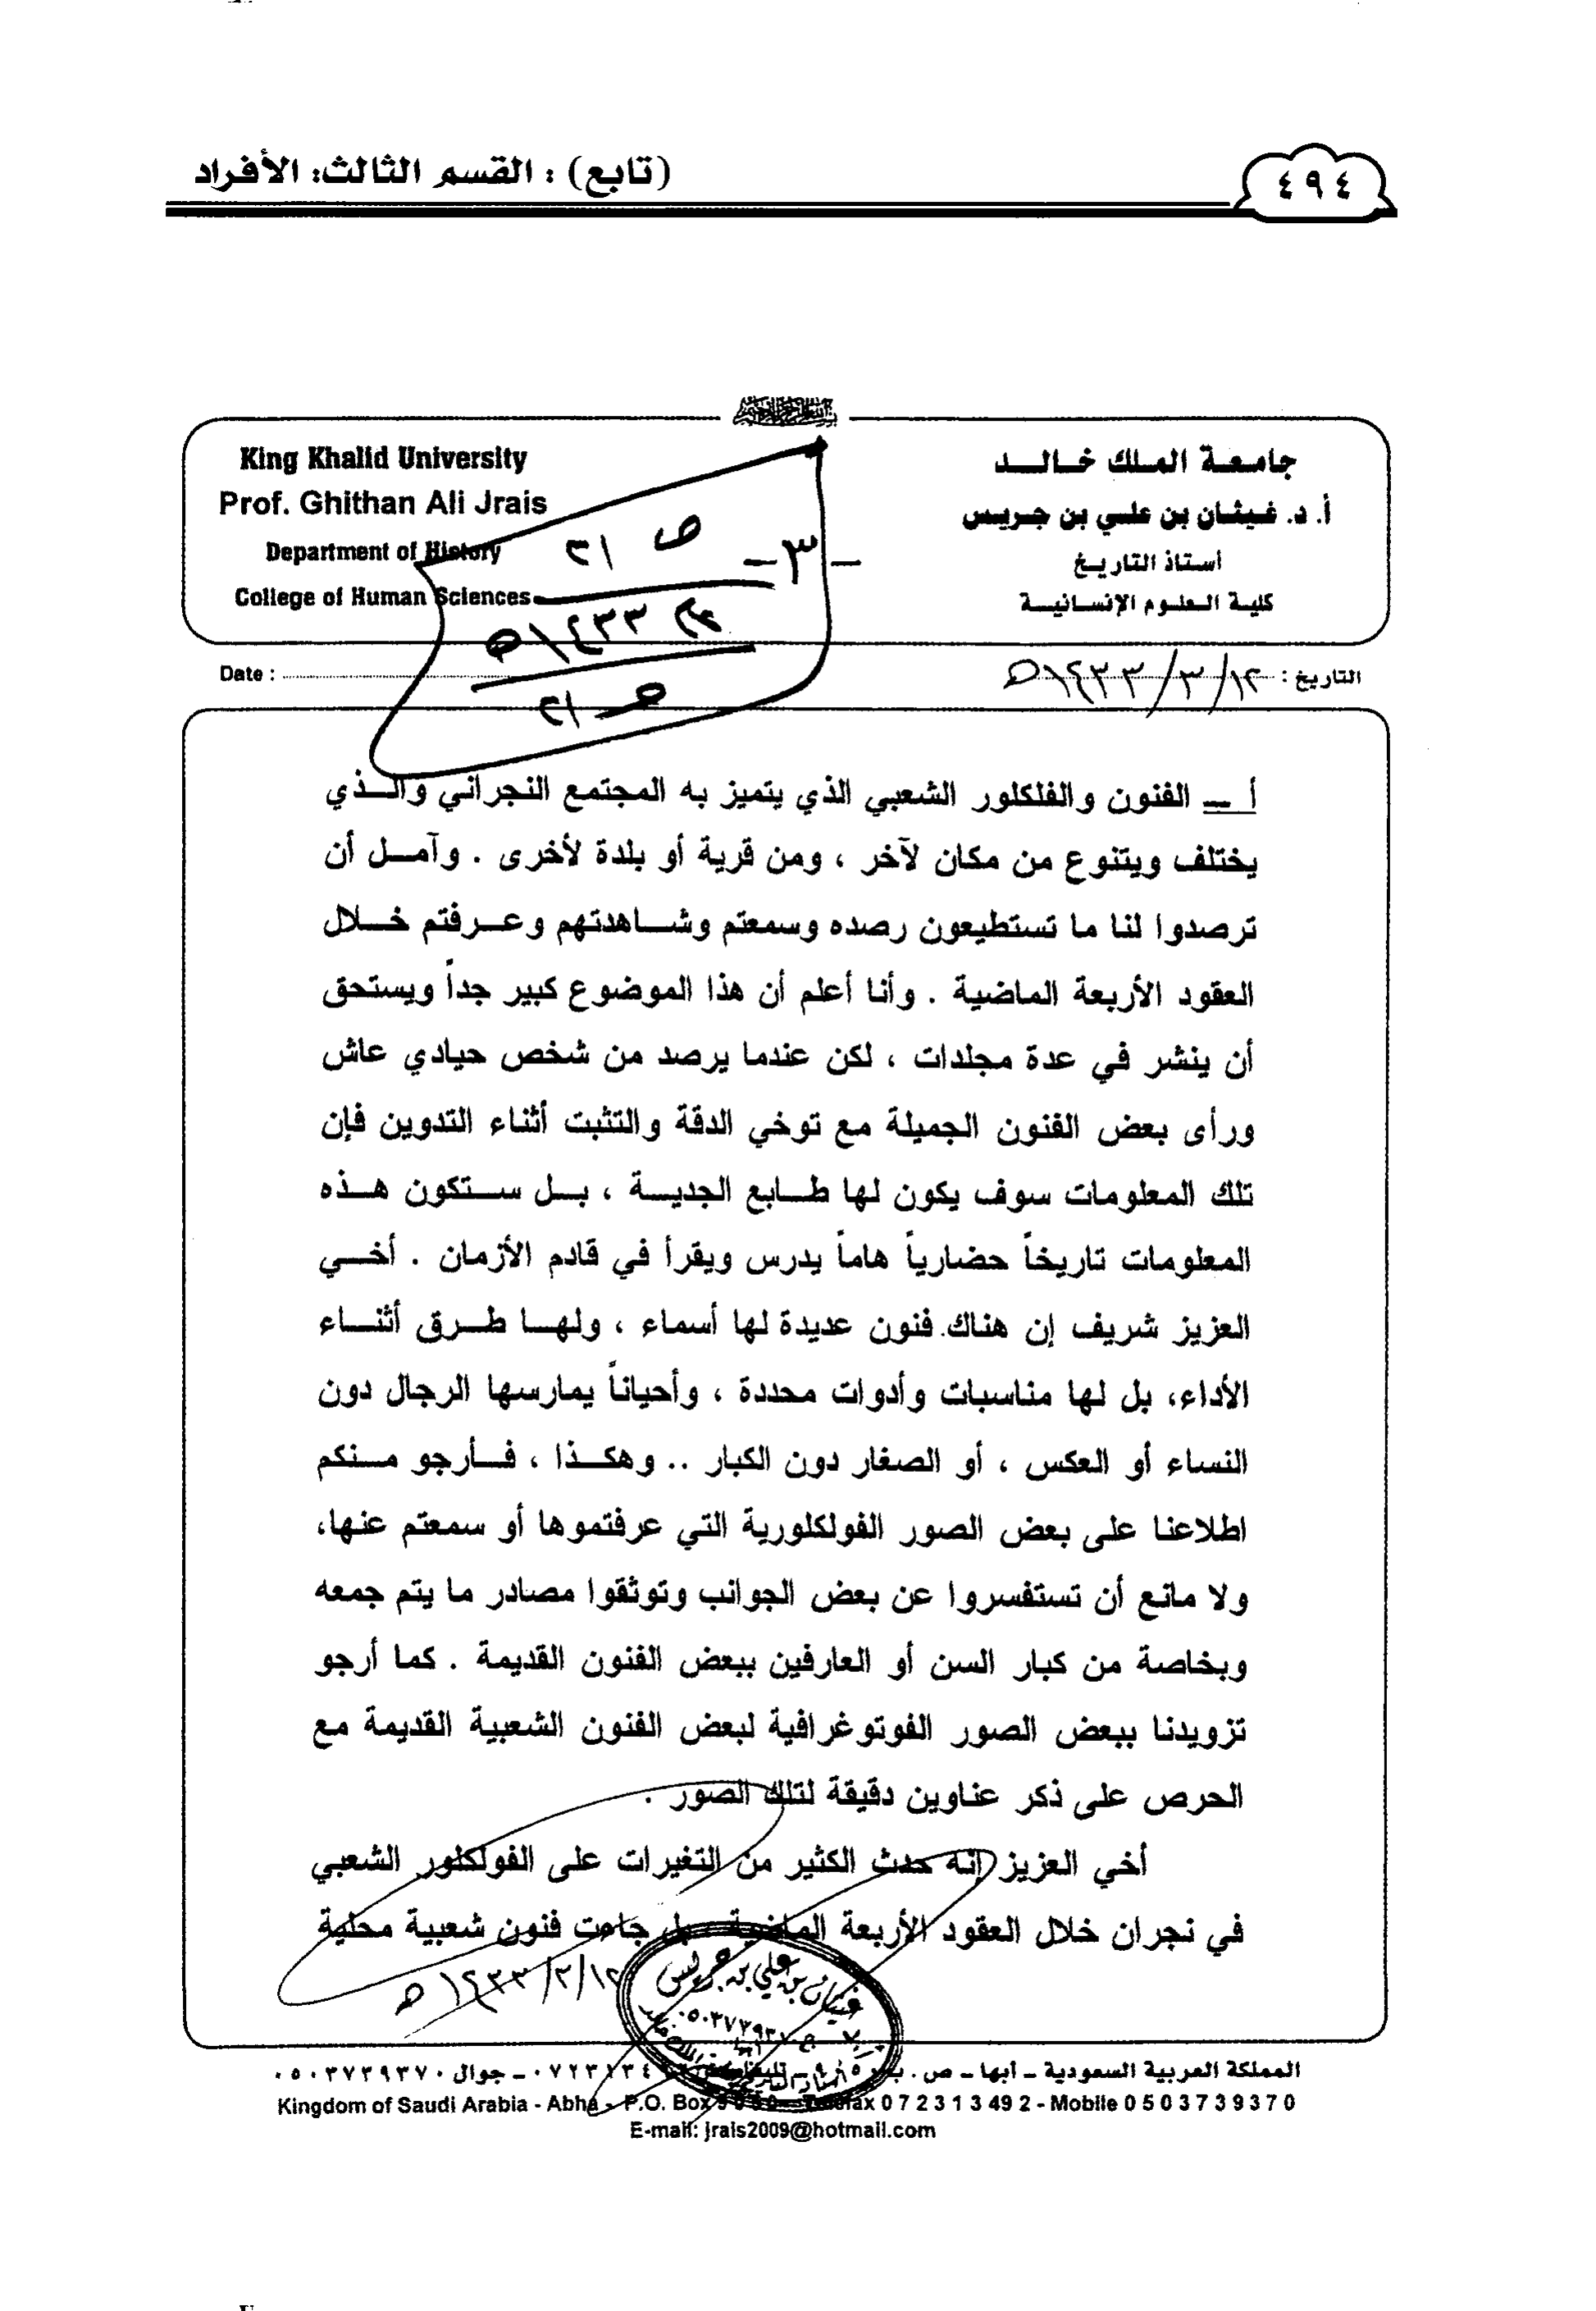 (تابع) : القسم الثالث: الأفراد
٤٩٤
جامعة الملك خالد
أ. د. غيثان بن علي بن جريس
أستاذ التاريخ
كلية العلوم الإنسانية
King Khalid University
Prof. Ghithan Ali Jrais
Department of History
College of Human Sciences
-٣-
ص ٢١
١٤٣٣هـ
التاريخ : ١٢/٣/١٤٣٣هـ
Date :
أ – الفنون والفلكلور الشعبي الذي يتميز به المجتمع النجراني والذي
يختلف ويتنوع من مكان لآخر ، ومن قرية أو بلدة لأخرى . وآمل أن
ترصدوا لنا ما تستطيعون رصده وسمعتم وشاهدتهم وعرفتم خلال
العقود الأربعة الماضية . وأنا أعلم أن هذا الموضوع كبير جداً ويستحق
أن ينشر في عدة مجلدات ، لكن عندما يرصد من شخص حيادي عاش
ورأى بعض الفنون الجميلة مع توخي الدقة والتثبت أثناء التدوين فإن
تلك المعلومات سوف يكون لها طابع الجدية ، بل ستكون هذه
المعلومات تاريخاً حضارياً هاماً يدرس ويقرأ في قادم الأزمان . أخي
العزيز شريف إن هناك فنون عديدة لها أسماء ، ولها طرق أثناء
الأداء، بل لها مناسبات وأدوات محددة ، وأحياناً يمارسها الرجال دون
النساء أو العكس ، أو الصغار دون الكبار .. وهكذا ، فأرجو منكم
اطلاعنا على بعض الصور الفولكلورية التي عرفتموها أو سمعتم عنها،
ولا مانع أن تستفسروا عن بعض الجوانب وتوثقوا مصادر ما يتم جمعه
وبخاصة من كبار السن أو العارفين ببعض الفنون القديمة . كما أرجو
تزويدنا ببعض الصور الفوتوغرافية لبعض الفنون الشعبية القديمة مع
الحرص على ذكر عناوين دقيقة لتلك الصور .
أخي العزيز إنه حدث الكثير من التغيرات على الفولكلور الشعبي
في نجران خلال العقود الأربعة الماضية ، بل جاءت فنون شعبية محلية
غيثان بن علي بن جريس
١٢/٣/١٤٣٣هـ
المملكة العربية السعودية – أبها – ص . ب – جوال ٠٥٠٣٧٣٩٣٧٠
Kingdom of Saudi Arabia - Abha - P.O. Box Telefax 0 7 2 3 1 3 49 2 - Mobile 0 5 0 3 7 3 9 3 7 0
E-mail: jrais2009@hotmail.com